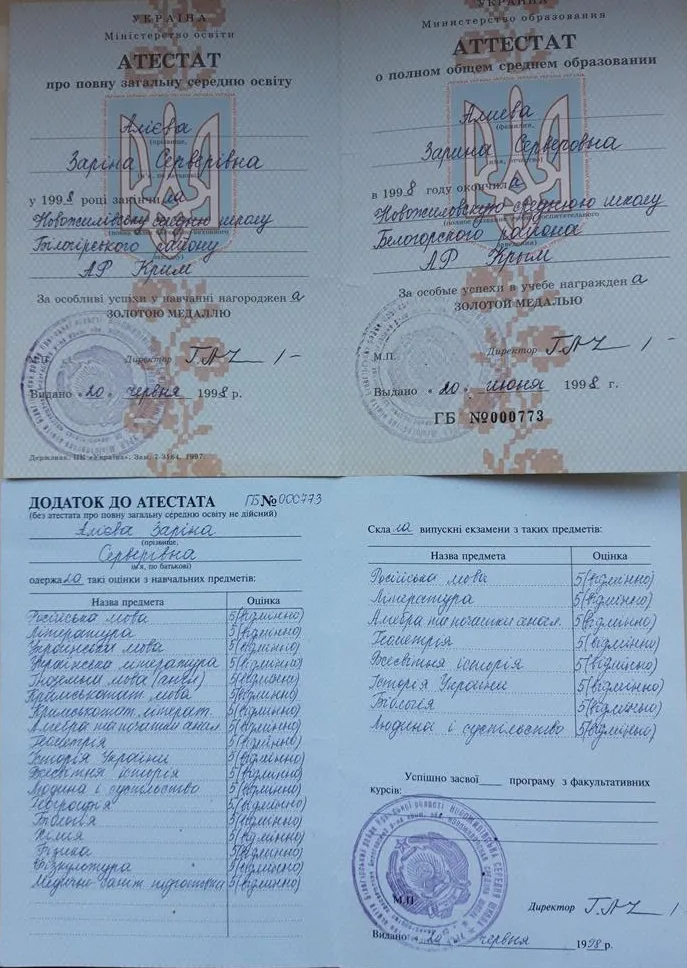 УКРАЇНА
Міністерство освіти
АТЕСТАТ
про повну загальну середню освіту
Алієва
(прізвище,
Заріна Серверівна
у 1998 році закінчила
Новожилівську середню школу
Білогірського району
АР Крим
За особливі успіхи у навчанні нагороджена
ЗОЛОТОЮ МЕДАЛЛЮ
М.П. Директор
Видано «20» червня 1998 р.
Держзнак. ПК «Україна». Зам. 7-3564. 1997.
УКРАИНА
Министерство образования
АТТЕСТАТ
о полном общем среднем образовании
Алиева
(фамилия,
Зарина Серверовна
в 1998 году окончила
Новожиловскую среднюю школу
Белогорского района
АР Крым
За особые успехи в учебе награждена
ЗОЛОТОЙ МЕДАЛЬЮ
М.П. Директор
Выдано «20» июня 1998 г.
ГБ №000773
ДОДАТОК ДО АТЕСТАТА ГБ№000773
(без атестата про повну загальну середню освіту не дійсний)
Алієва Заріна
(прізвище,
Серверівна
ім'я, по батькові)
одержала такі оцінки з навчальних предметів:
Назва предмета Оцінка
Російська мова 5(відмінно)
Література 5(відмінно)
Українська мова 5(відмінно)
Українська література 5(відмінно)
Іноземна мова (англ) 5(відмінно)
Кримськотат. мова 5(відмінно)
Кримськотат. літерат. 5(відмінно)
Алгебра та початки анал. 5(відмінно)
Геометрія 5(відмінно)
Історія України 5(відмінно)
Всесвітня історія 5(відмінно)
Людина і суспільство 5(відмінно)
Географія 5(відмінно)
Біологія 5(відмінно)
Хімія 5(відмінно)
Фізика 5(відмінно)
Фізкультура 5(відмінно)
Медично-саніт. підготовка 5(відмінно)
Склала випускні екзамени з таких предметів:
Назва предмета Оцінка
Російська мова 5(відмінно)
Література 5(відмінно)
Алгебра та початки анал. 5(відмінно)
Геометрія 5(відмінно)
Всесвітня історія 5(відмінно)
Історія України 5(відмінно)
Біологія 5(відмінно)
Людина і суспільство 5(відмінно)
Успішно засвої___ програму з факультативних
курсів:
М.П.
Директор
Видано 20 червня 1998 р.